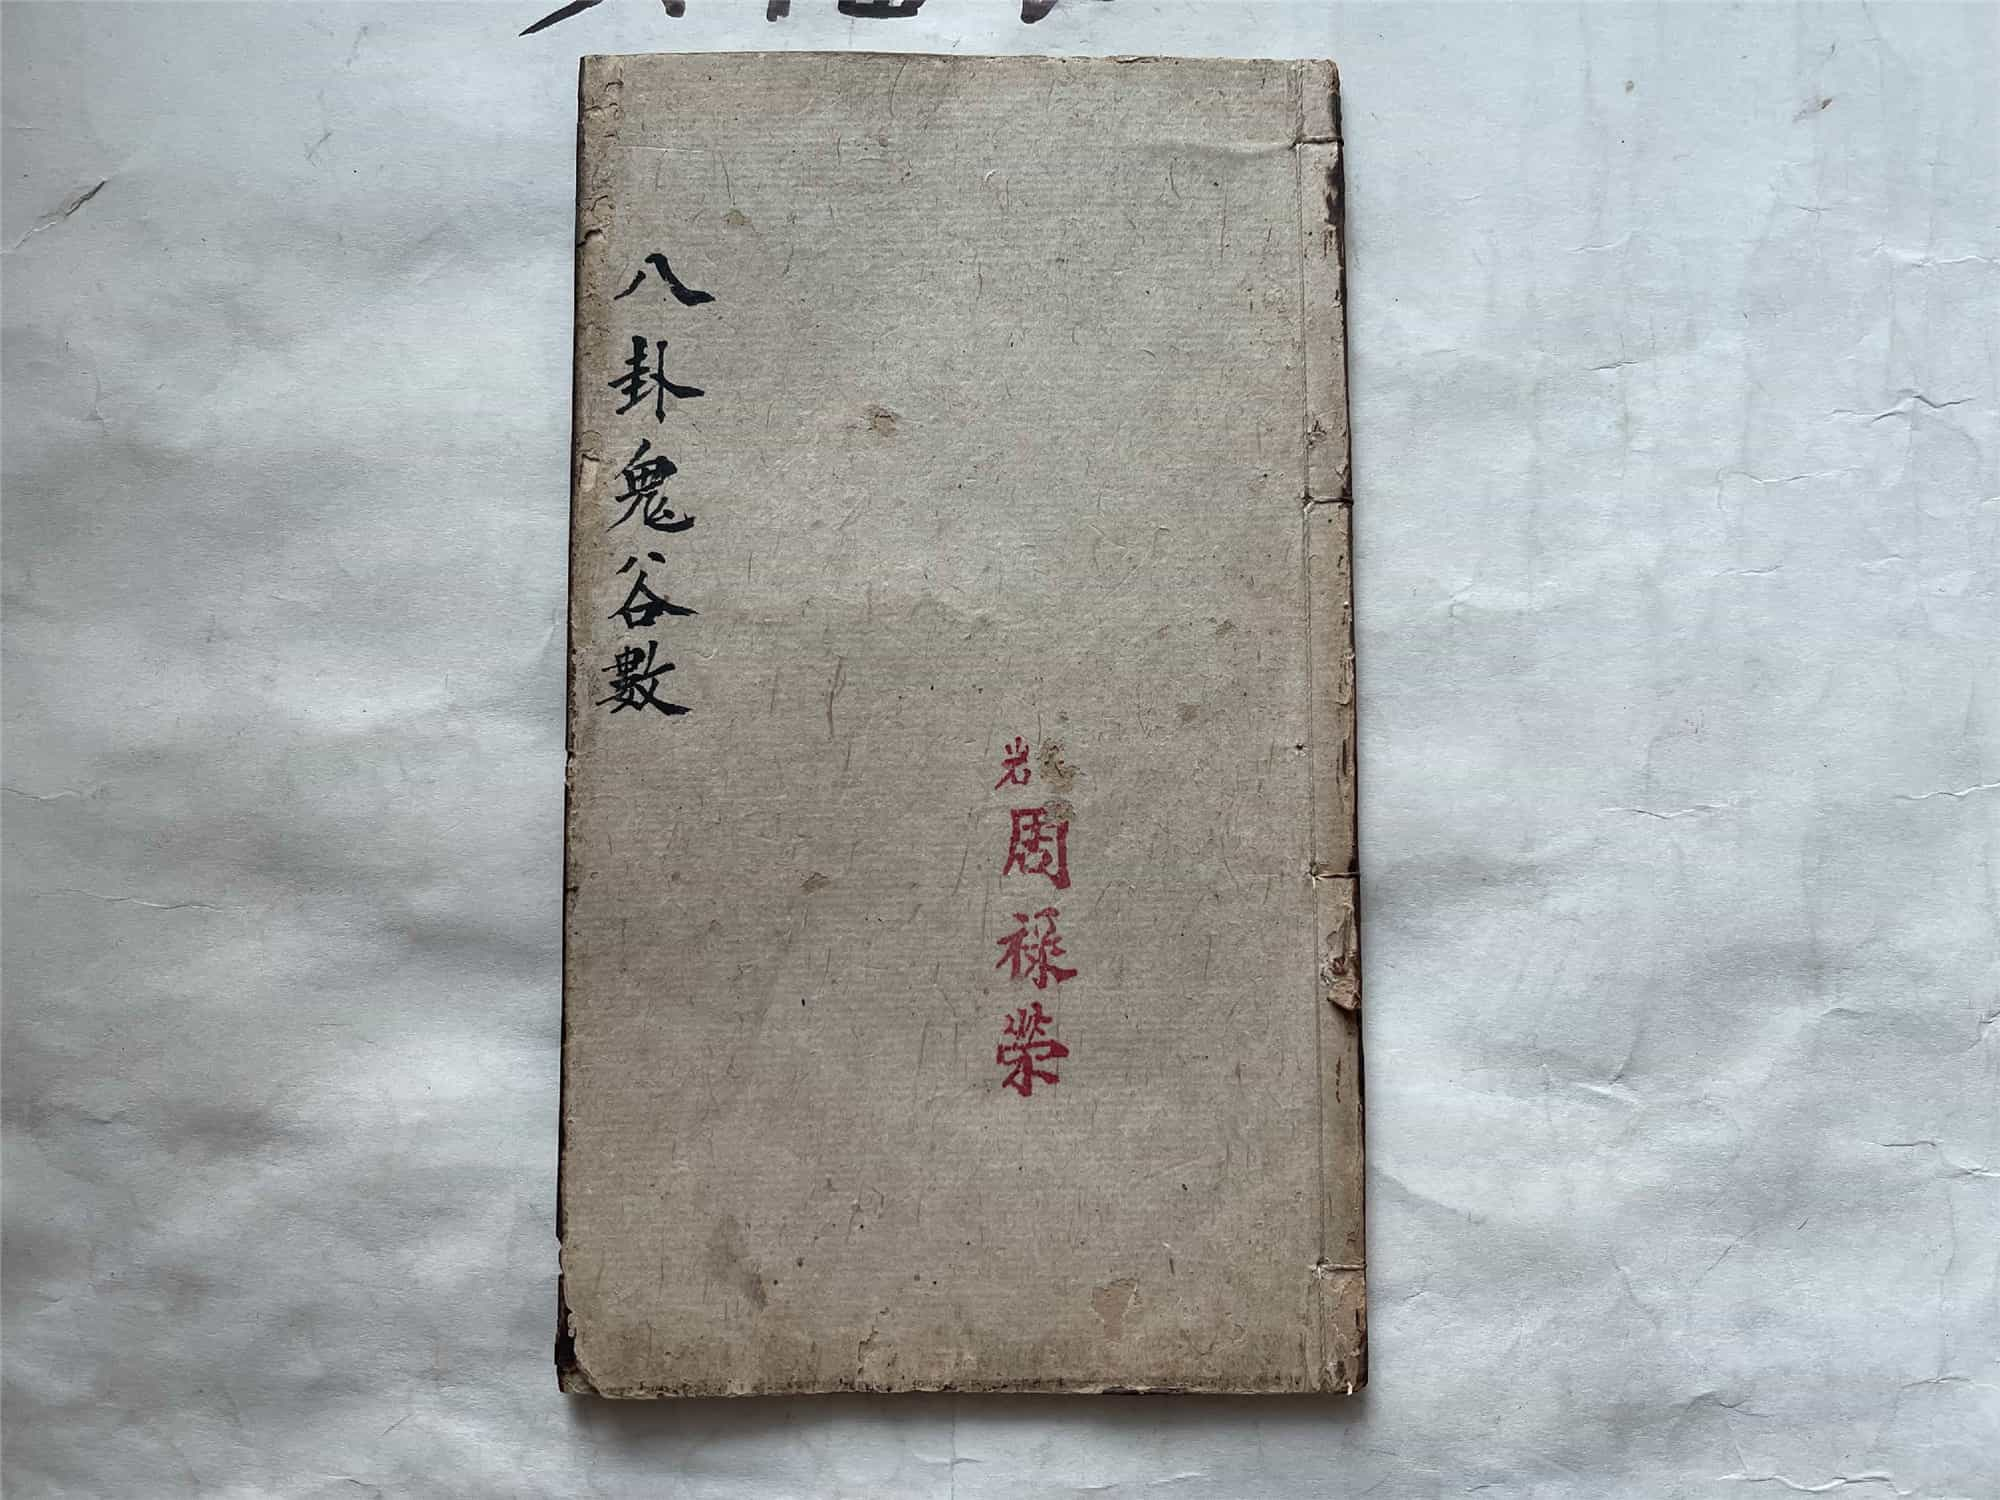 八卦鬼谷數
岩
周祿榮